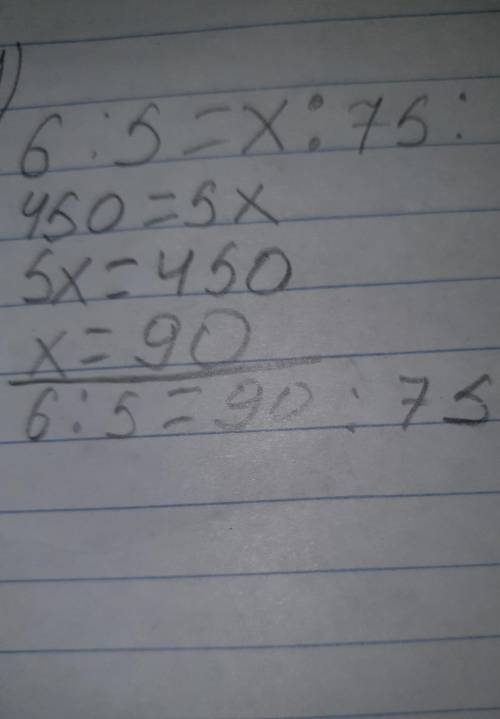 )
6 : 5 = x : 75 :
450 = 5x
5x = 450
x = 90
6 : 5 = 90 : 75